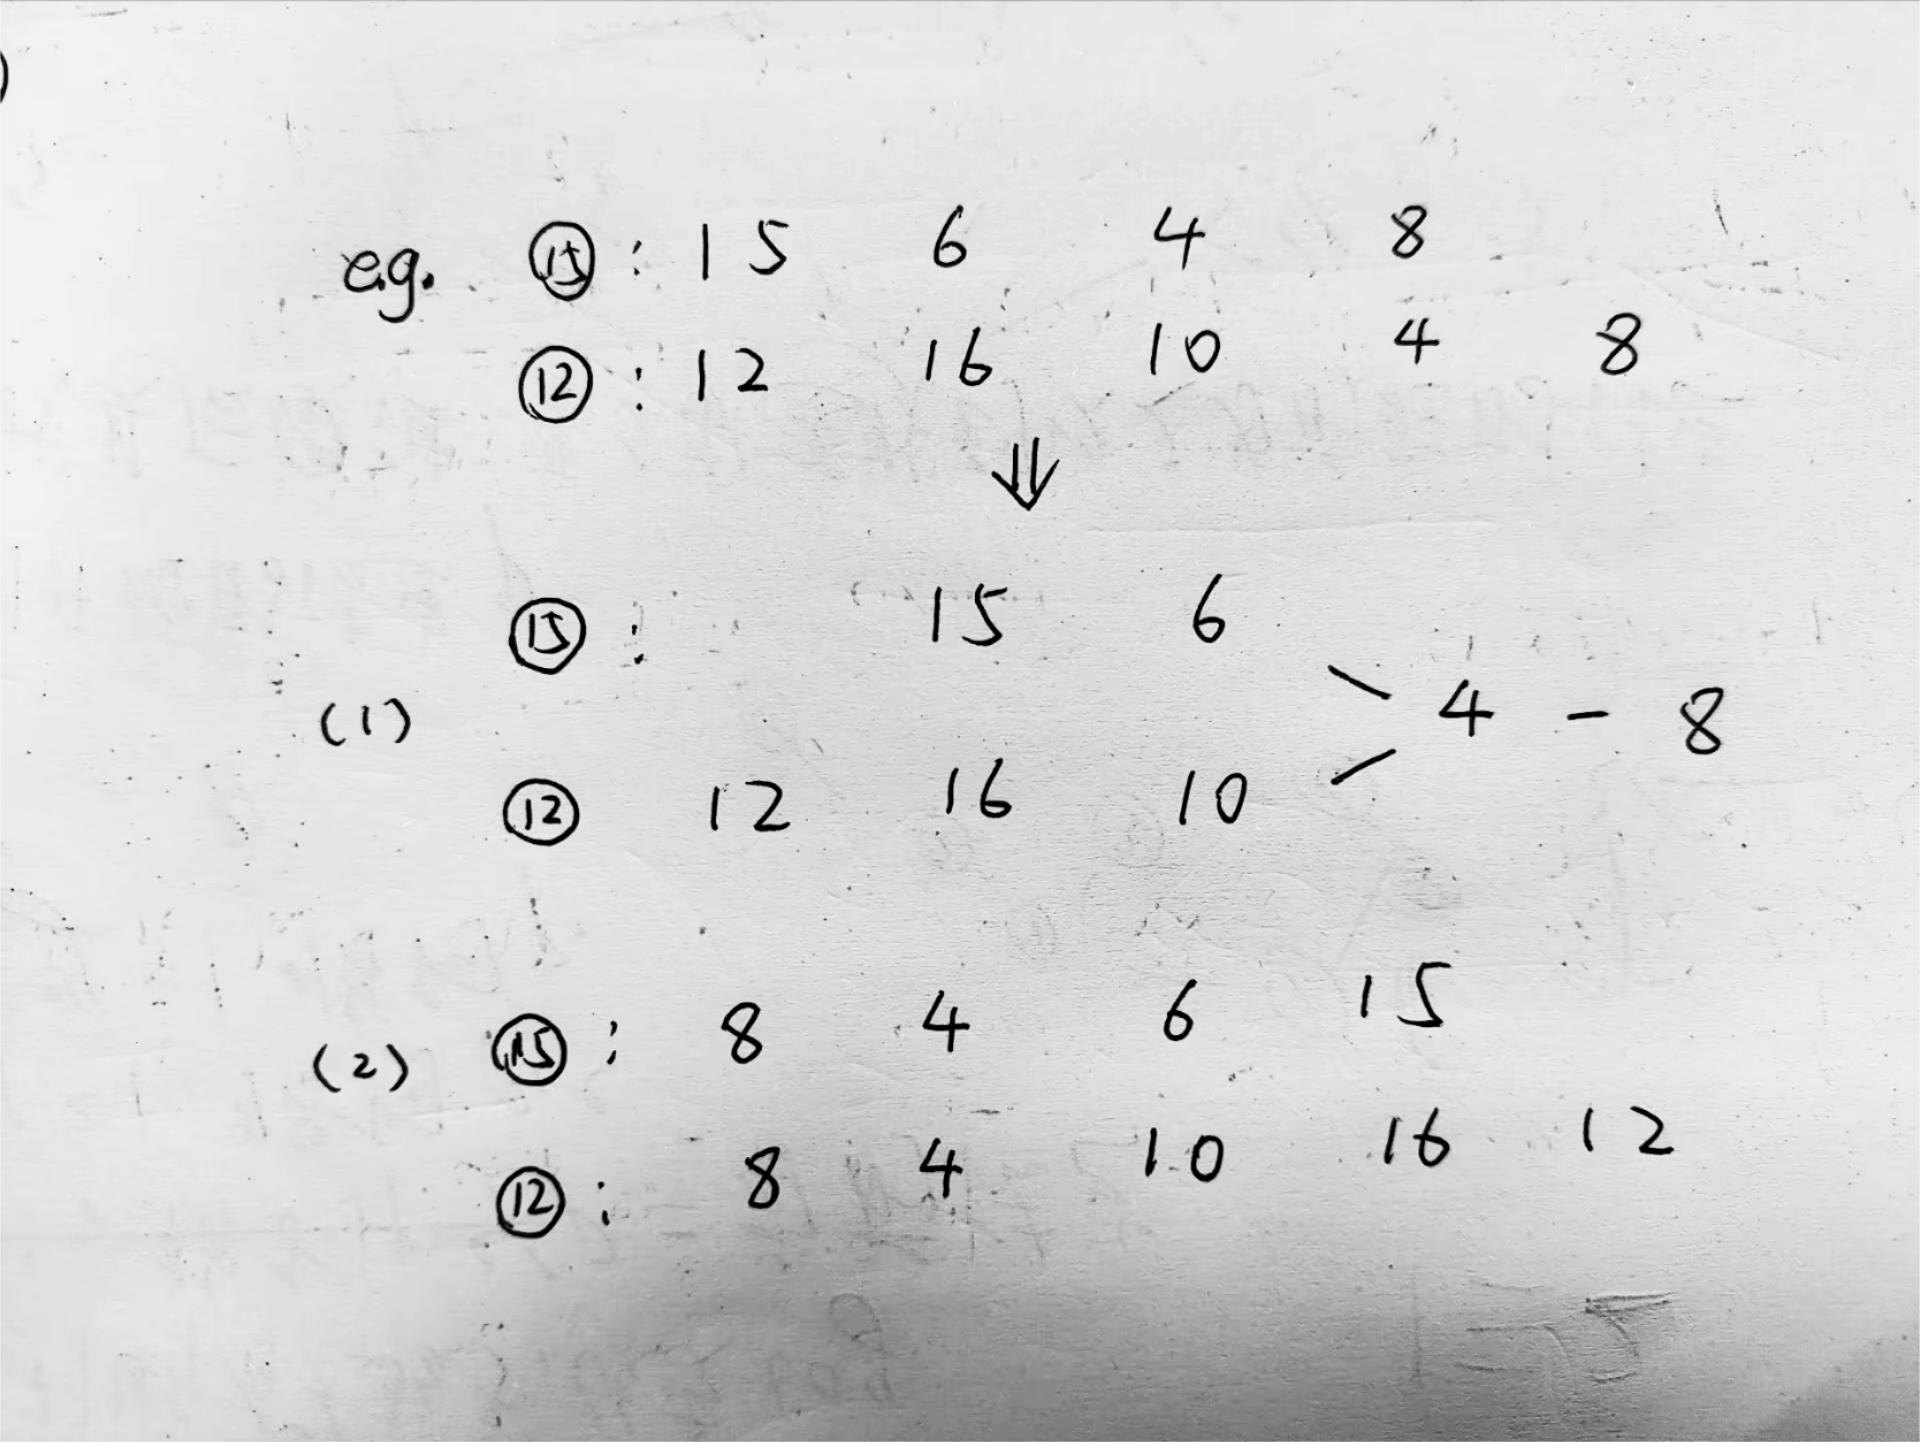 e.g. ⑮ : 15 6 4 8
⑫ : 12 16 10 4 8
⇓
⑮ : 15 6
(1) 4 - 8
⑫ 12 16 10
(2) ⑮ : 8 4 6 15
⑫ : 8 4 10 16 12